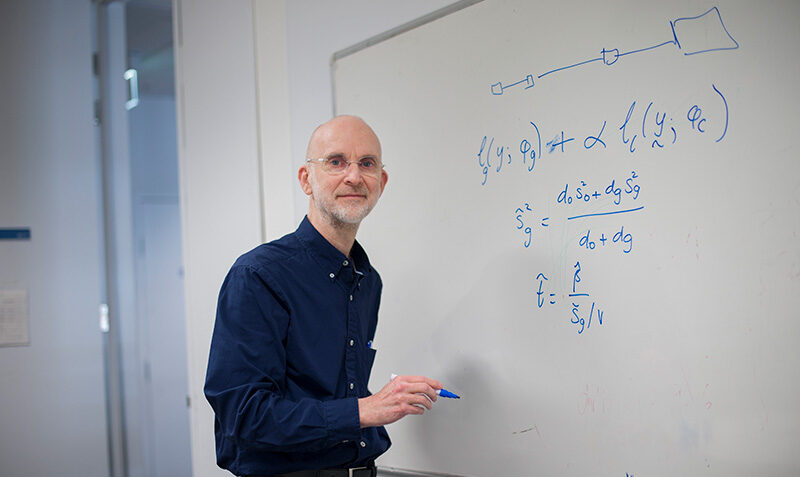 ℓ_g(y; φ_g) + α ℓ_c(y; φ_c)
s̃_g² = (d₀s₀² + d_g s_g²) / (d₀ + d_g)
t̃ = β̂ / (s̃_g/v)